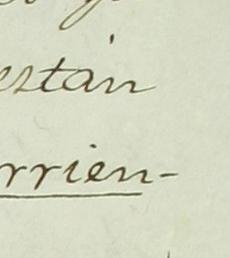 estan
rrien-